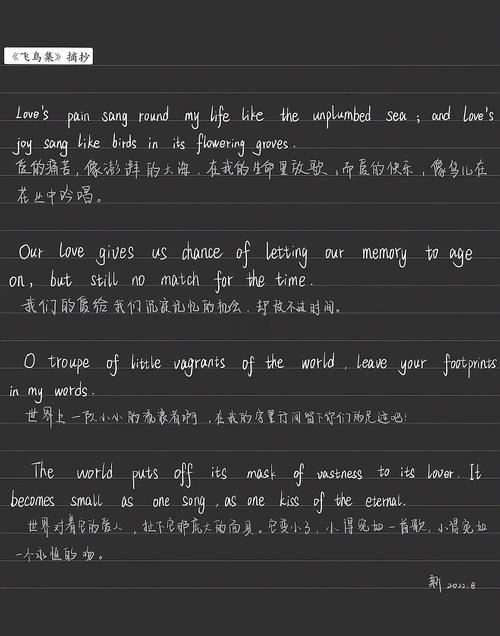 《飞鸟集》摘抄
Love's pain sang round my life like the unplumbed sea ; and love's
joy sang like birds in its flowering groves.
爱的痛苦，像澎湃的大海，在我的生命里放歌，而爱的快乐，像鸟儿在
花丛中吟唱。
Our love gives us chance of letting our memory to age
on, but still no match for the time.
我们的爱给我们沉淀记忆的机会，却敌不过时间。
O troupe of little vagrants of the world , leave your footprints
in my words.
世界上一队小小的漂泊者啊，在我的字里行间留下你们的足迹吧！
The world puts off its mask of vastness to its lover. It
becomes small as one song , as one kiss of the eternal.
世界对着它的爱人，扯下它那庞大的面具。它变小了，小得宛如一首歌，小得宛如
一个永恒的吻。
新 2022.8